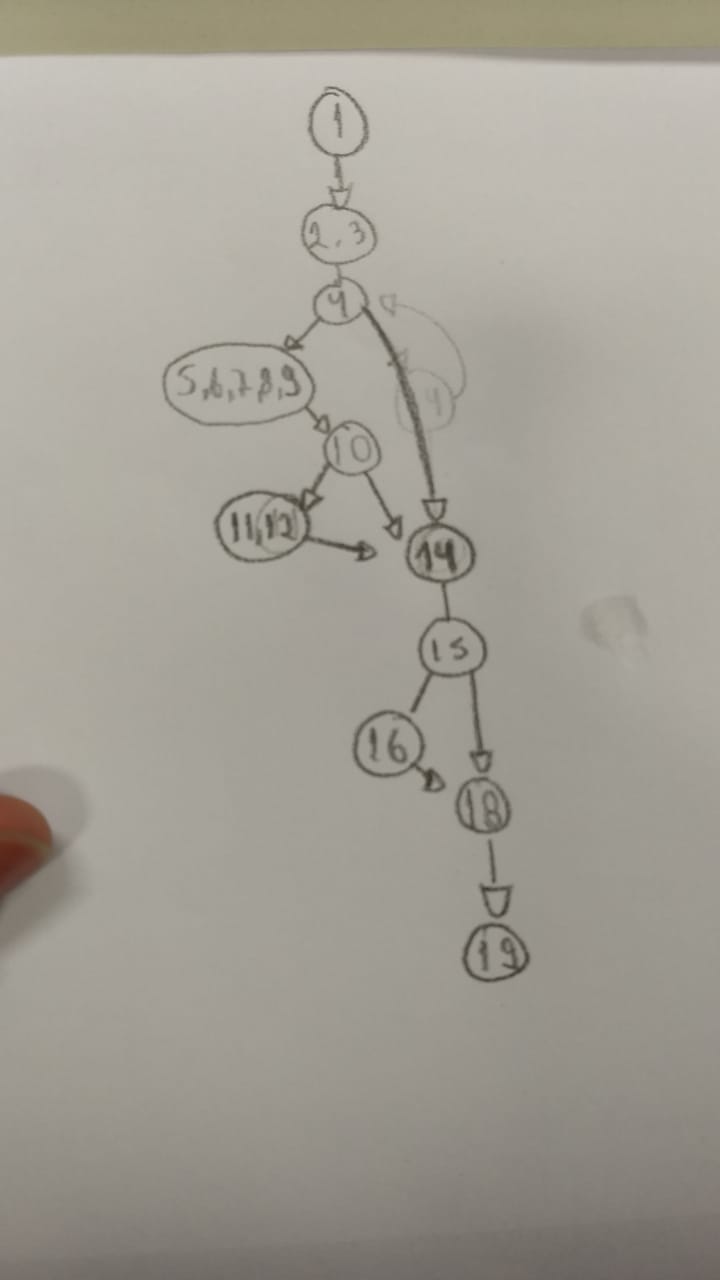 1
2,3
4
5,6,7,8,9
10
11,12
14
15
16
18
19